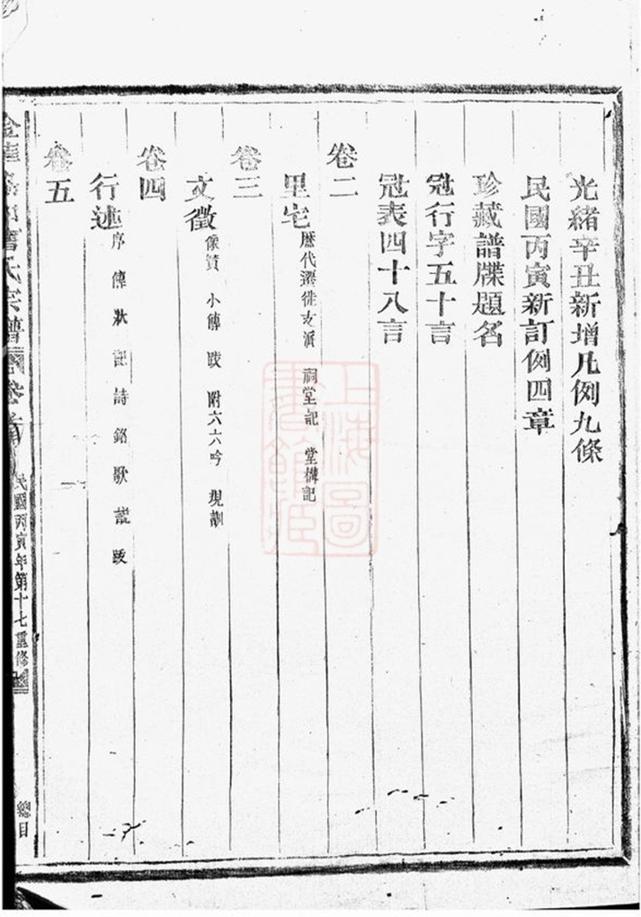 光緒辛丑新增凡例九條
民國丙寅新訂例四章
珍藏譜牒題名
冠行字五十言
冠表四十八言
卷二
里宅 歷代遷徙支派 祠堂記 堂構記
卷三
文徵 像贊 小傳 跋 附六六吟 規訓
卷四
行述 序 傳 狀 記 詩 銘 歌 說 跋
卷五
氏宗譜 卷首 民國丙寅年第十七重修 總目
上海圖書館藏